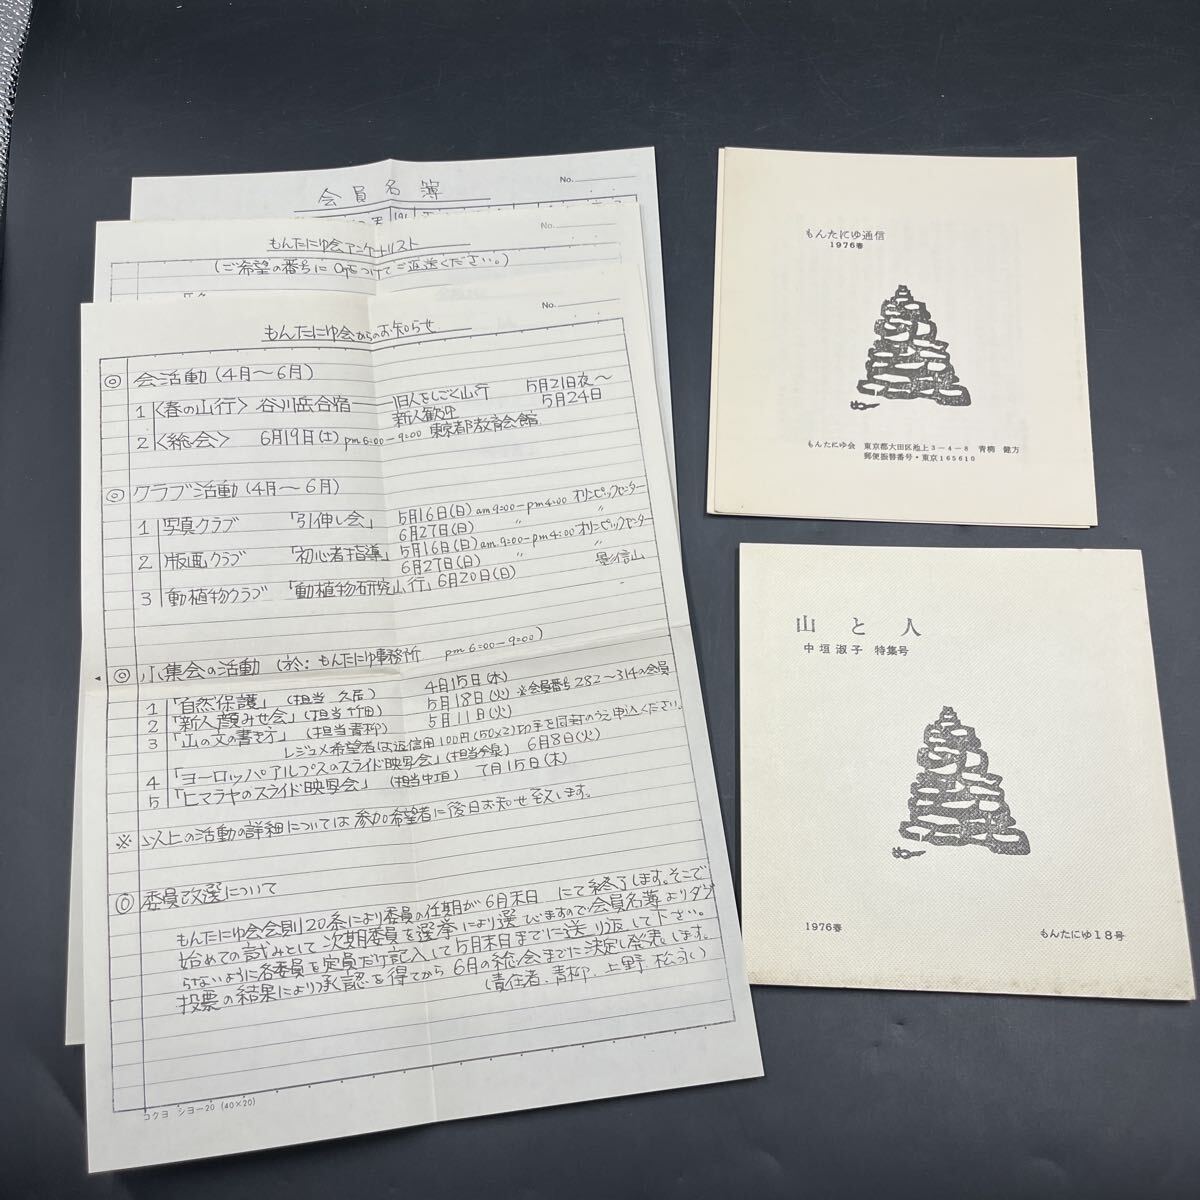 会員名簿
No.
もんたにゆ会アンケートリスト
No.
(ご希望の番号に○印をつけてご返送ください。)
もんたにゆ会からのお知らせ
No.
◎ 会活動(4月〜6月)
1 〈春の山行〉 谷川岳合宿 旧人をしごく山行 5月21日夜〜
新人歓迎 5月24日
2 〈総会〉 6月19日(土) pm6:00-9:00 東京都教育会館
◎ クラブ活動(4月〜6月)
1 写真クラブ 「引伸し会」 5月16日(日) am9:00-pm4:00 オリンピックセンター
6月27日(日) 〃 〃
2 版画クラブ 「初心者指導」 5月16日(日) am9:00-pm4:00 オリンピックセンター
6月27日(日) 〃 〃
3 動植物クラブ 「動植物研究山行」 6月20日(日) 景信山
◎ 小集会の活動 (於:もんたにゆ事務所 pm6:00-9:00)
1 「自然保護」 (担当 久居) 4月15日(木)
2 「新人顔みせ会」 (担当 竹田) 5月18日(火) ※会員番号282〜314の会員
3 「山の文の書き方」 (担当 青柳) 5月11日(火)
レジュメ希望者は返信用100円(50×2)切手を同封のうえ申込ください。
4 「ヨーロッパアルプスのスライド映写会」 (担当 今泉) 6月8日(火)
5 「ヒマラヤのスライド映写会」 (担当 中垣) 7月15日(木)
※ 以上の活動の詳細については参加希望者に後日お知せ致します。
◎ 委員改選について
もんたにゆ会会則20条により委員の任期が6月末日にて終了します。そこで
始めての試みとして次期委員を選挙により選びますので会員名簿よりダブ
らないように各委員を定員だけ記入して5月末日までに送り返して下さい。
投票の結果により承認を得てから6月の総会までに決定し発表します。
(責任者.青柳.上野.松永)
コクヨ シヨ-20 (40×20)
もんたにゆ通信
1976春
もんたにゆ会 東京都大田区池上3-4-8 青柳 健方
郵便振替番号・東京165610
山と人
中垣淑子 特集号
1976春
もんたにゆ18号